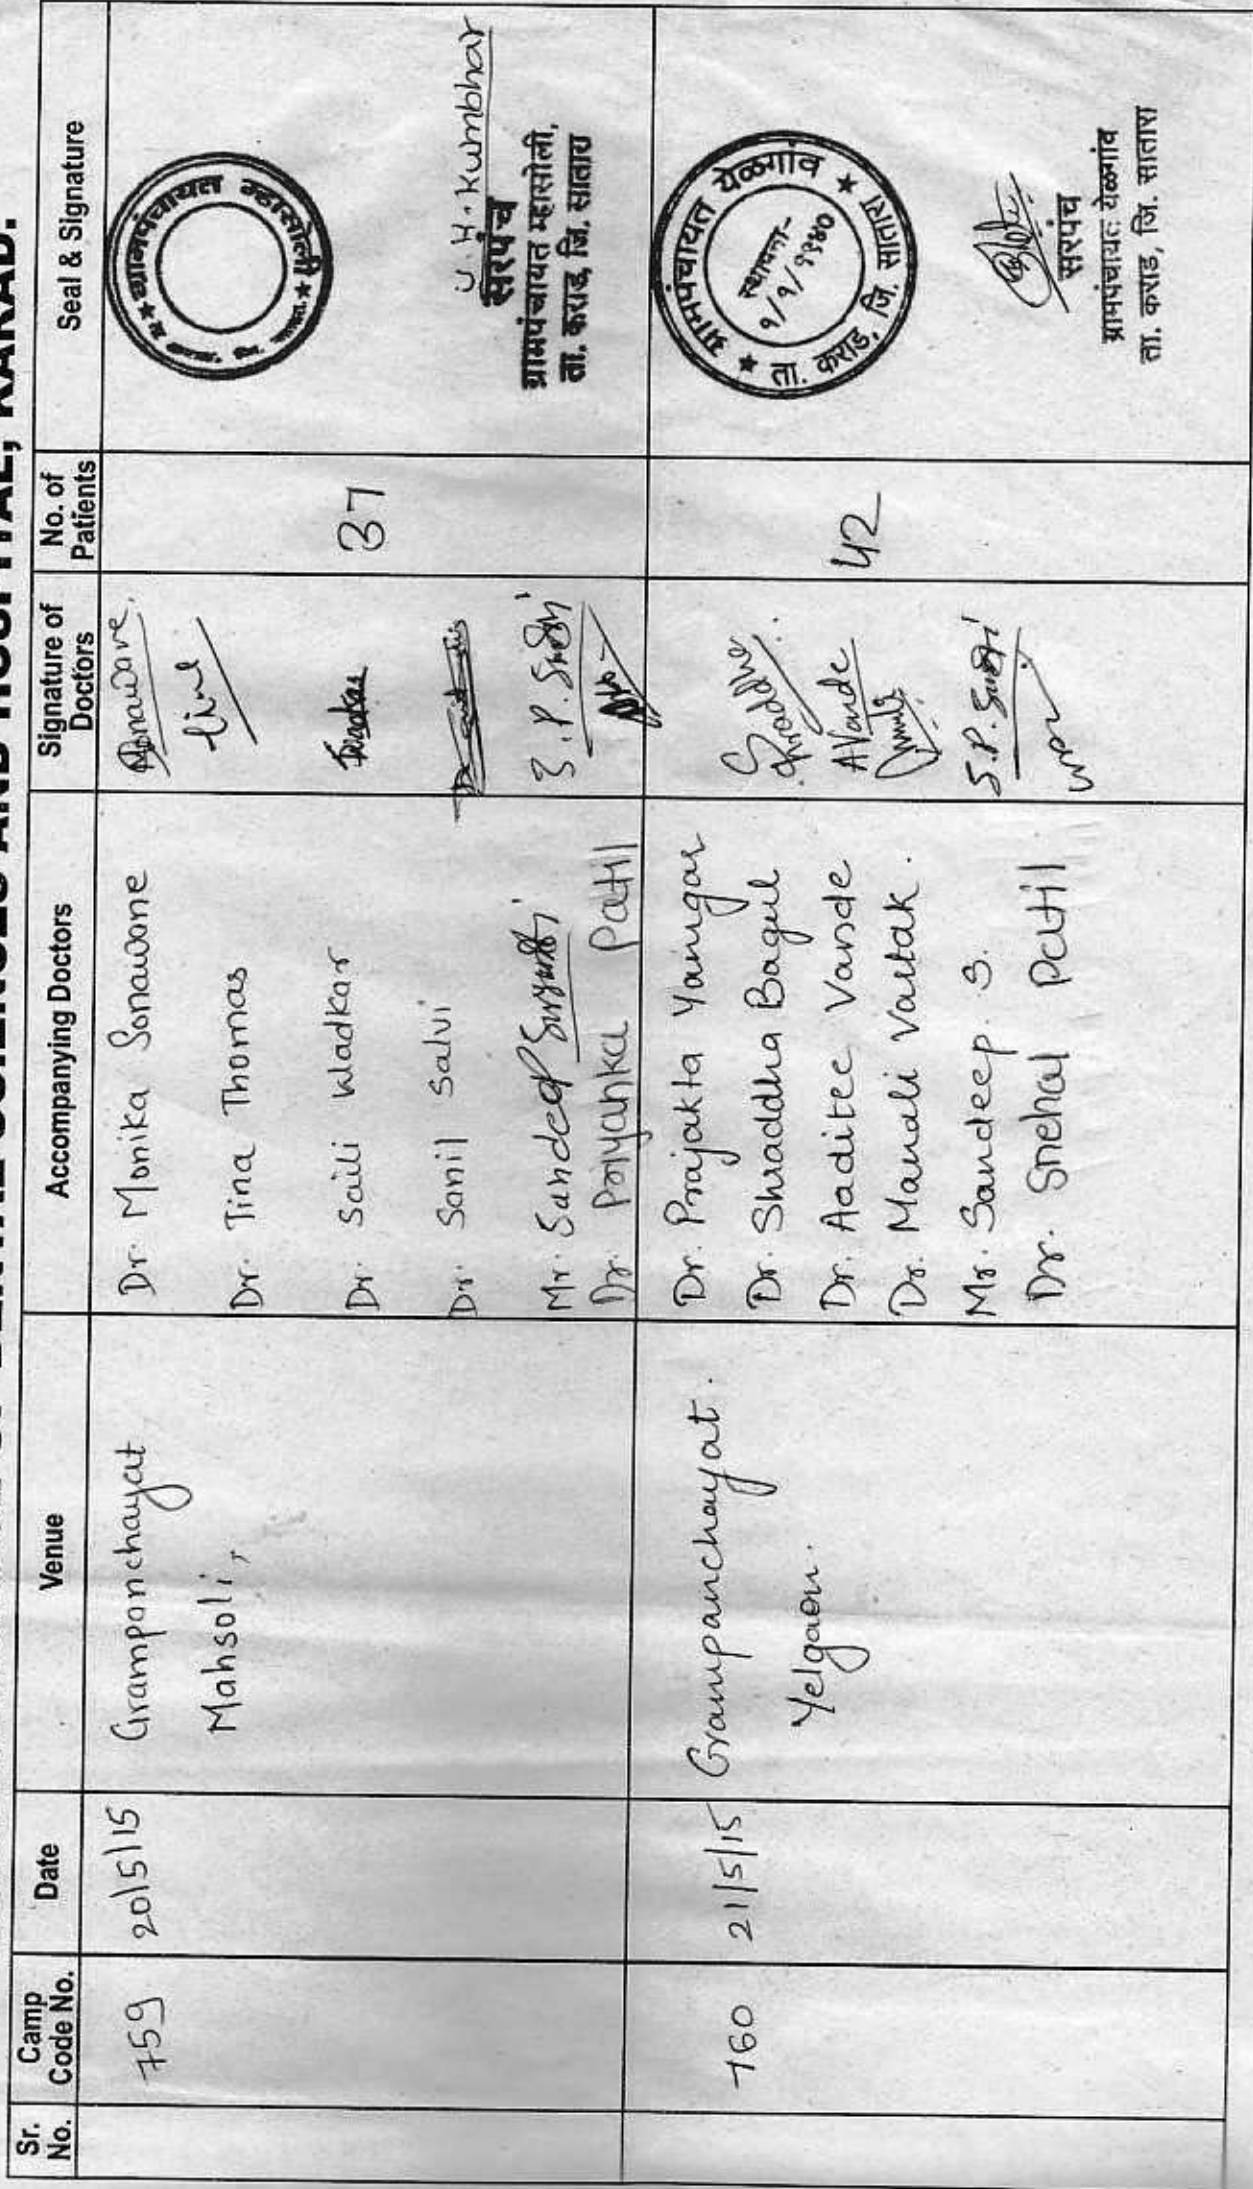 DENTAL SCIENCES AND HOSPITAL, KARAD.
Sr. No.
Camp Code No.
Date
Venue
Accompanying Doctors
Signature of Doctors
No. of Patients
Seal & Signature
759
20/5/15
Grampanchayat
Mahsoli,
Dr. Monika Sonawane
Dr. Tina Thomas
Dr. Saili Wadkar
Dr. Sanil Salvi
Mr. Sandeep
Dr. Priyanka Patil
Sonawane.
37
ग्रामपंचायत म्हासोली
U. H. Kumbhar
सरपंच
ग्रामपंचायत म्हासोली,
ता. कराड, जि. सातारा
760
21/5/15
Grampanchayat.
Yelgaon.
Dr. Prajakta Yamgar
Dr. Shraddha Bagul
Dr. Aaditee Vande
Dr. Manali Vartak.
Mr. Sandeep. S.
Dr. Snehal Patil
Shraddha
AVande
42
ग्रामपंचायत येळगांव
स्थापना-
१/१/१९४०
ता. कराड, जि. सातारा
सरपंच
ग्रामपंचायत येळगांव
ता. कराड, जि. सातारा